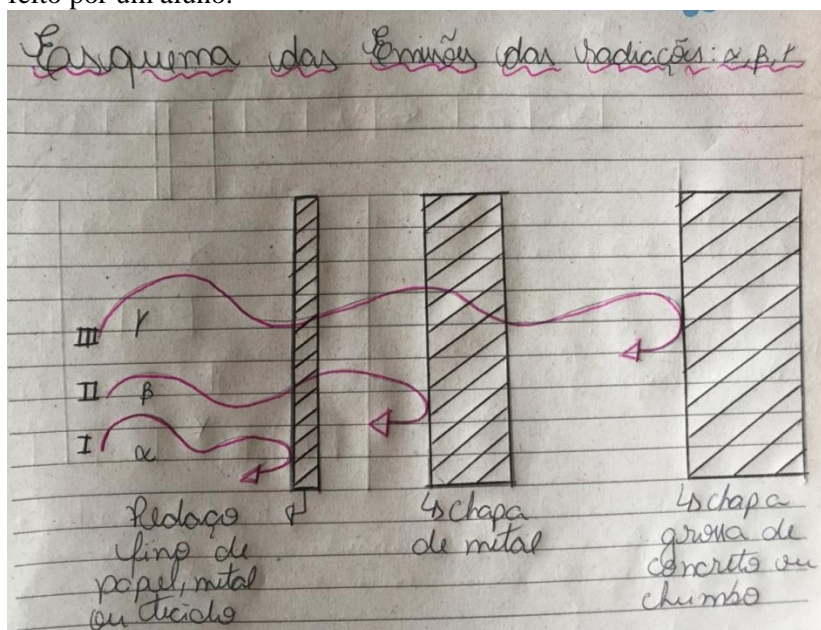 feito por um aluno.
Esquema das Emisões das radiações: α, β, γ
III γ
II β
I α
Pedaço
fino de
papel, metal
ou tecido
↳ chapa
de metal
↳ chapa
grossa de
concreto ou
chumbo